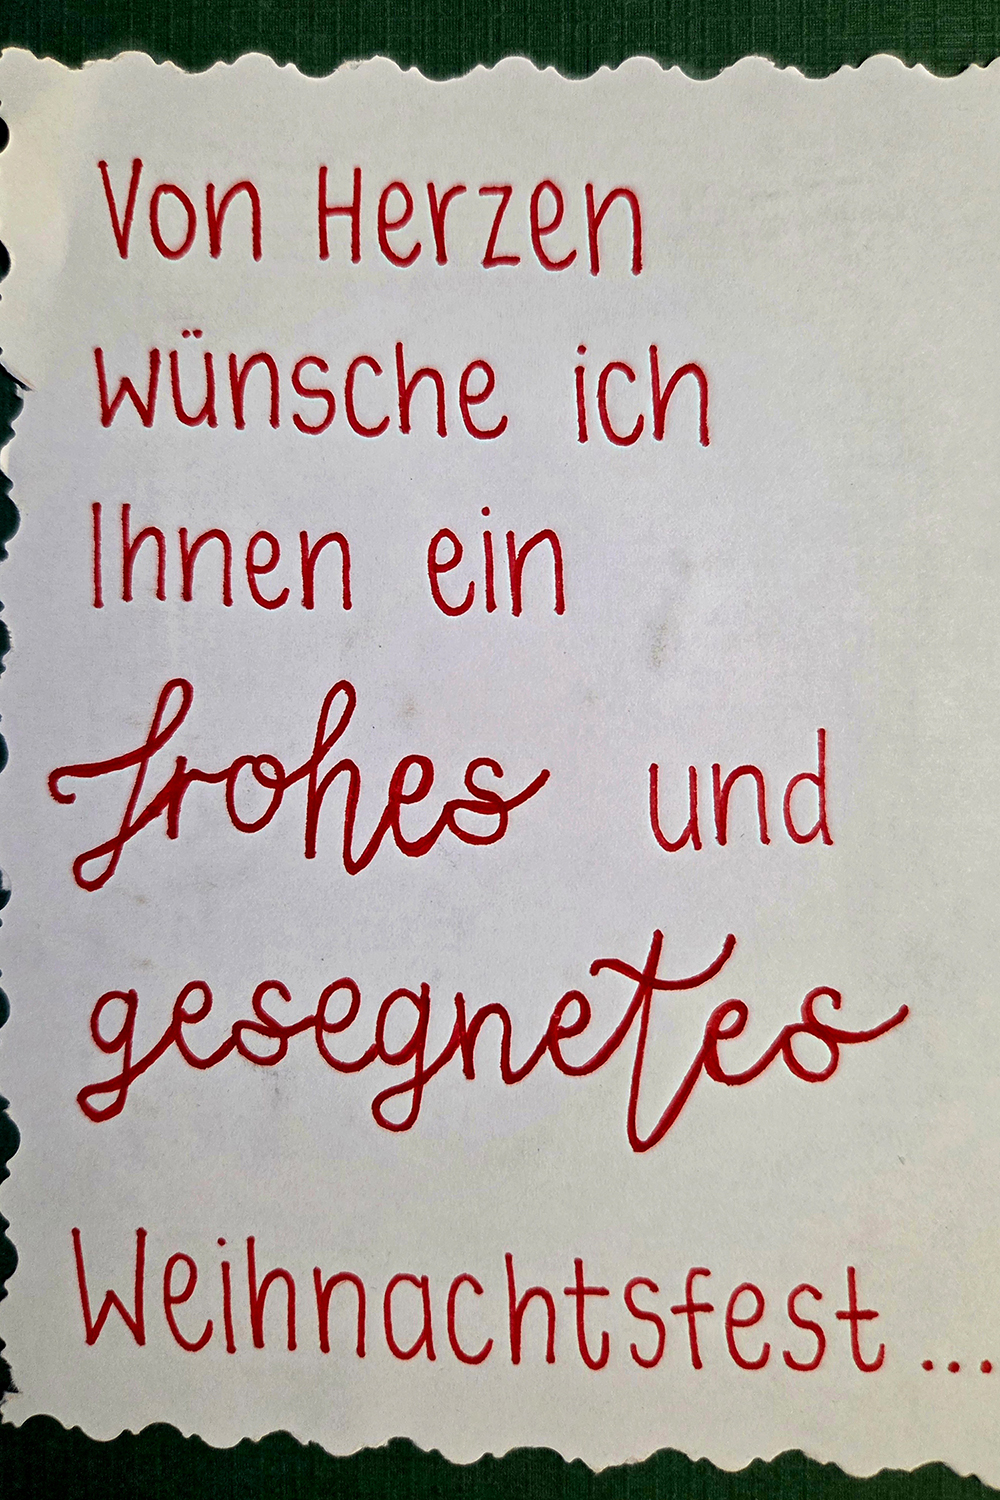 Von Herzen
wünsche ich
Ihnen ein
frohes und
gesegnetes
Weihnachtsfest...